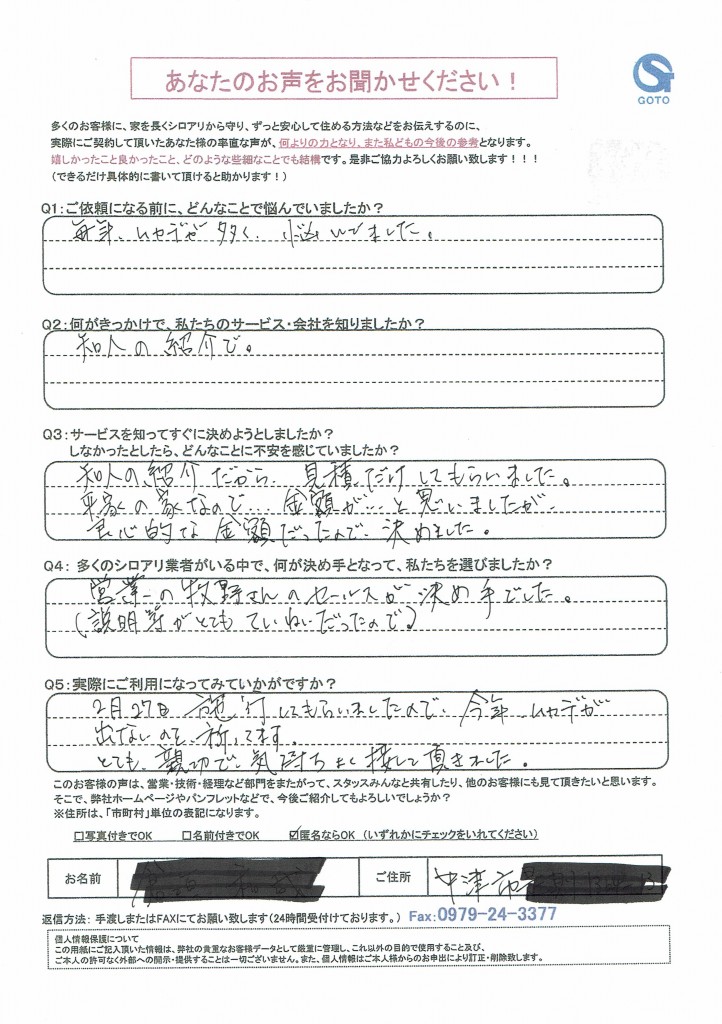 あなたのお声をお聞かせください！
GOTO
多くのお客様に、家を長くシロアリから守り、ずっと安心して住める方法などをお伝えするのに、
実際にご契約して頂いたあなた様の率直な声が、何よりの力となり、また私どもの今後の参考となります。
嬉しかったこと良かったこと、どのような些細なことでも結構です。是非ご協力よろしくお願い致します！！！
（できるだけ具体的に書いて頂けると助かります！）
Q1：ご依頼になる前に、どんなことで悩んでいましたか？
毎年、ムカデが多く、悩んでました。
Q2：何がきっかけで、私たちのサービス・会社を知りましたか？
知人の紹介で。
Q3：サービスを知ってすぐに決めようとしましたか？
しなかったとしたら、どんなことに不安を感じていましたか？
知人の紹介だから、見積だけしてもらいました。
の家なので…金額が…と思いましたが、
良心的な金額だったので、決めました。
Q4： 多くのシロアリ業者がいる中で、何が決め手となって、私たちを選びましたか？
営業の牧野さんのセールスが決め手でした。
（説明等がとてもていねいだったので）
Q5：実際にご利用になってみていかがですか？
2月27日施行してもらいましたので、今年ムカデが
出ないのを祈ってます
とても、親切で気持ちよく接して頂きました。
このお客様の声は、営業・技術・経理など部門をまたがって、スタッスみんなと共有したり、他のお客様にも見て頂きたいと思います。
そこで、弊社ホームページやパンフレットなどで、今後ご紹介してもよろしいでしょうか？
※住所は、「市町村」単位の表記になります。
□写真付きでOK □名前付きでOK ☑匿名ならOK （いずれかにチェックをいれてください）
お名前 ご住所 中津市
返信方法： 手渡しまたはFAXにてお願い致します（24時間受付ております。） Fax：0979-24-3377
個人情報保護について
この用紙にご記入頂いた情報は、弊社の貴重なお客様データとして厳重に管理し、これ以外の目的で使用すること及び、
ご本人の許可なく外部への開示・提供することは一切ございません。また、個人情報はご本人様からのお申出により訂正・削除致します。